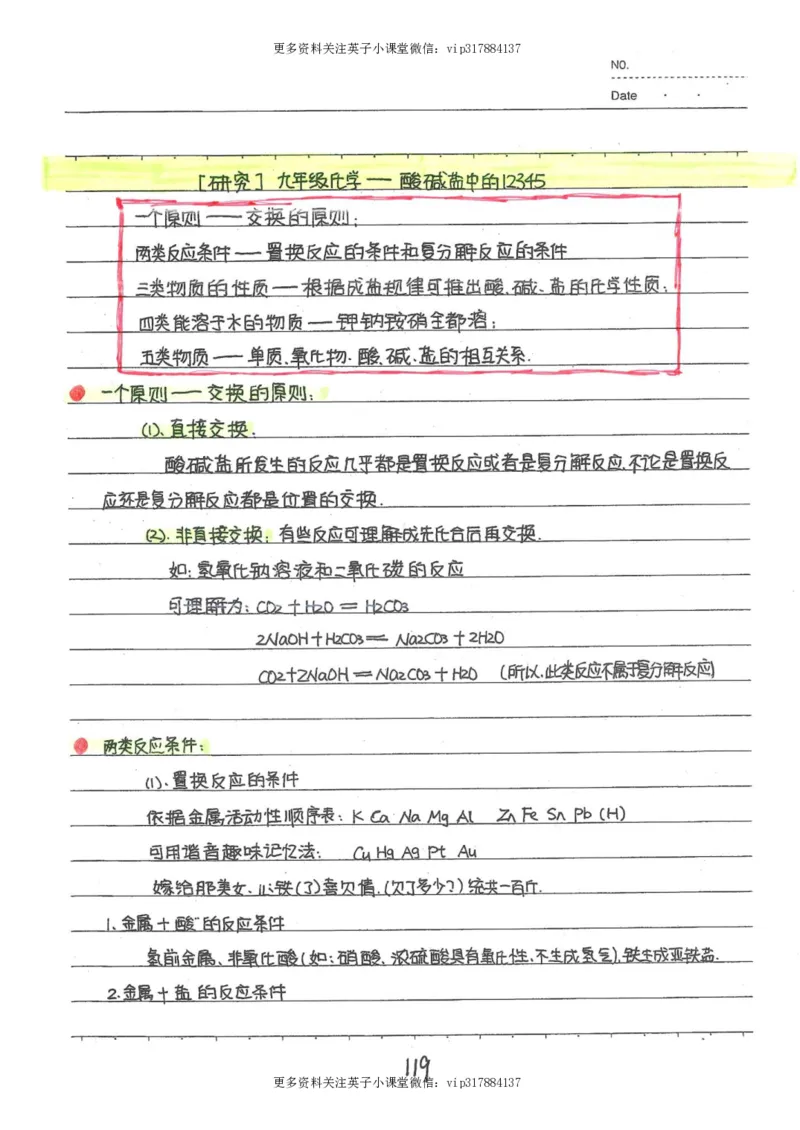 更多资料关注英子小课堂微信：vip317884137
NO.
Date
[研究] 九年级化学——酸碱盐中的12345
一个原则——交换的原则；
两类反应条件——置换反应的条件和复分解反应的条件
三类物质的性质——根据成盐规律可推出酸、碱、盐的化学性质；
四类能溶于水的物质——钾钠铵硝全都溶；
五类物质——单质、氧化物、酸、碱、盐的相互关系.
一个原则——交换的原则：
(1)、直接交换.
酸碱盐所发生的反应几乎都是置换反应或者是复分解反应.不论是置换反
应还是复分解反应都是位置的交换.
(2).非直接交换：有些反应可理解成先化合后再交换.
如：氢氧化钠溶液和二氧化碳的反应
可理解为：CO2+H2O=H2CO3
2NaOH+H2CO3=Na2CO3+2H2O
CO2+2NaOH=Na2CO3+H2O (所以.此类反应不属于复分解反应)
两类反应条件：
(1).置换反应的条件
依据金属活动性顺序表：K Ca Na Mg Al Zn Fe Sn Pb (H)
可用谐音趣味记忆法： Cu Hg Ag Pt Au
嫁给那美女、心铁(了)喜欠情.(欠了多少？)统共一百斤.
1、金属+酸的反应条件
氢前金属、非氧化酸(如：硝酸、浓硫酸具有氧化性,不生成氢气),铁生成亚铁盐.
2.金属+盐的反应条件
119
更多资料关注英子小课堂微信：vip317884137